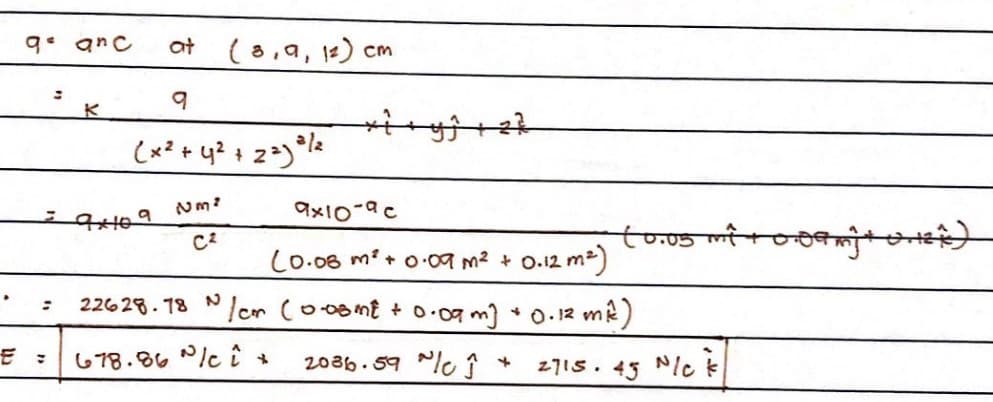 q = 9nC at (3, 9, 12) cm
= K q / (x² + y² + z²)^3/2 xî + yĵ + zk̂
= 9x10^9 Nm²/C² 9x10^-9 C / (0.03 m² + 0.09 m² + 0.12 m²) (0.03 mî + 0.09 mĵ + 0.12k̂)
= 22628.78 N/cm (0.03mî + 0.09 mĵ + 0.12 mk̂)
E = 678.86 N/C î + 2036.59 N/C ĵ + 2715.45 N/C k̂